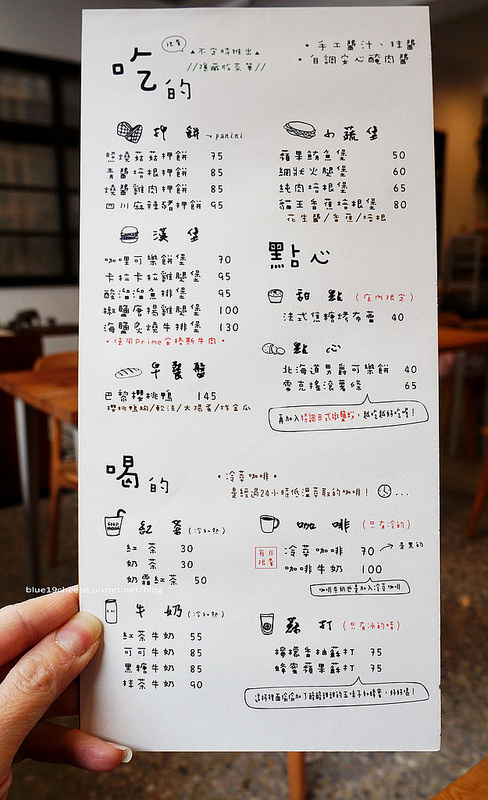 吃的
限量
▲不定時推出▲
//隱藏版菜單//
• 手工醬汁、抹醬
• 自調安心醃肉醬
押餅→panini
照燒菇菇押餅 75
青醬培根押餅 85
燒醬雞肉押餅 85
四川麻辣豬押餅 95
漢堡
咖哩可樂餅堡 70
卡拉卡拉雞腿堡 95
酸溜溜魚排堡 95
椒鹽唐揚雞腿堡 100
海鹽炙燒牛排堡 130
• 使用Prime安格斯牛肉 •
早餐盤
巴黎櫻桃鴨 145
櫻桃鴨胸/軟法/太陽蛋/炸金瓜
小蔬堡
蘋果鮪魚堡 50
網狀火腿堡 60
純肉培根堡 65
貓王香蕉培根堡 80
花生醬/香蕉/培根
點心
甜點(店內限定)
法式焦糖烤布蕾 40
點心
北海道男爵可樂餅 40
雪克搖滾薯條 65
再加入特調日式椒鹽粉,越吃越好吃唷!
喝的
• 冷萃咖啡 •
是經過24小時低溫萃取的咖啡! ...
紅茶(冷和熱)
紅茶 30
奶茶 30
奶霜紅茶 50
牛奶(冷和熱)
紅茶牛奶 55
可可牛奶 85
黑糖牛奶 85
抹茶牛奶 90
咖啡(只有冷的)
每日限量
冷萃咖啡 70 → 是黑的
咖啡牛奶 100
咖啡牛奶也是加入冷萃咖啡
蘇打(只有冰的唷)
檸檬香柚蘇打 75
蜂蜜蘋果蘇打 75
blue19cheese.pixnet.net/blog